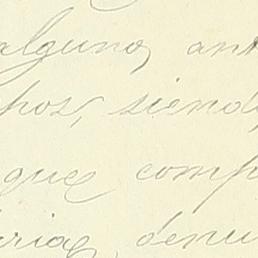 alguno, ant
pos, siend
que comp
rias, denu